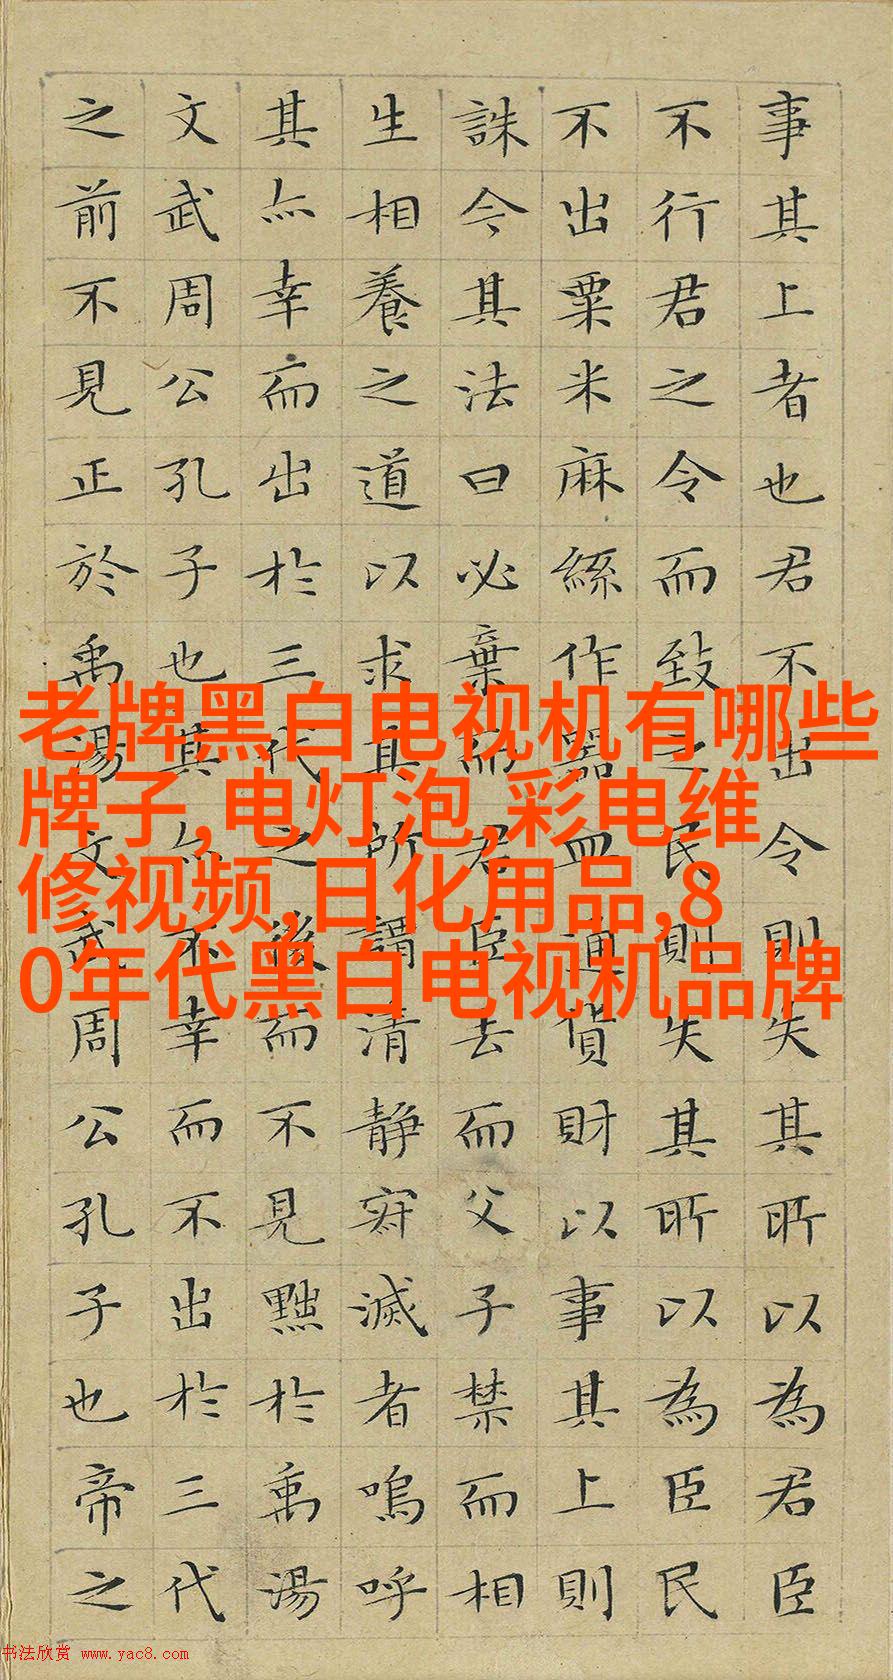 事其上者也君不出令則失其所以為君臣
不行君之令而致之民則失其所以為臣民
不出粟米麻絲作器皿通貨財以事其上則
誅今其法曰必棄而君臣去而父子禁而相
生相養之道以求其所謂清静寂滅者嗚呼
其亦幸而出於三代之後而不見黜於禹湯
文武周公孔子也其亦不幸而不出於三代
之前不見正於禹湯文武周公孔子也帝之
老牌黑白电视机有哪些
牌子,电灯泡,彩电维
修视频,日化用品,8
0年代黑白电视机品牌
书法欣赏 www.yac8.com